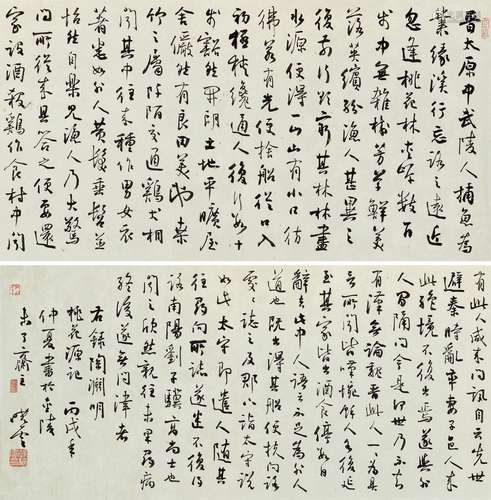 晉太原中武陵人捕魚為
業緣溪行忘路之遠近
忽逢桃花林夾岸數百
步中無雜樹芳草鮮美
落英繽紛漁人甚異之
復前行欲窮其林林盡
水源便得一山山有小口彷
彿若有光便捨船從口入
初極狹纔通人復行數十
步豁然開朗土地平曠屋
舍儼然有良田美池桑
竹之屬阡陌交通鷄犬相
聞其中往來種作男女衣
著悉如外人黃髮垂髫並
怡然自樂見漁人乃大驚
問所從來具答之便要還
家設酒殺鷄作食村中聞
有此人咸來問訊自云先世
避秦時亂率妻子邑人來
此絕境不復出焉遂與外
人間隔問今是何世乃不知
有漢無論魏晉此人一一為具
言所聞皆嘆惋餘人各復延
至其家皆出酒食停數日
辭去此中人語云不足為外人
道也既出得其船便扶向路
處處誌之及郡下詣太守說
如此太守即遣人隨其
往尋向所誌遂迷不復得
路南陽劉子驥高尚士也
聞之欣然親往未果尋病
終後遂無問津者
右錄陶淵明
桃花源記 丙戌年
仲夏書於金陵
未了齋主